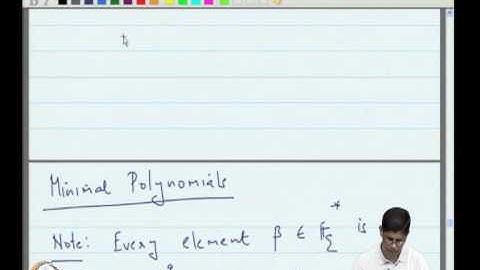 Minimal Polynomials
Note: Every element β ∈ F*_q is